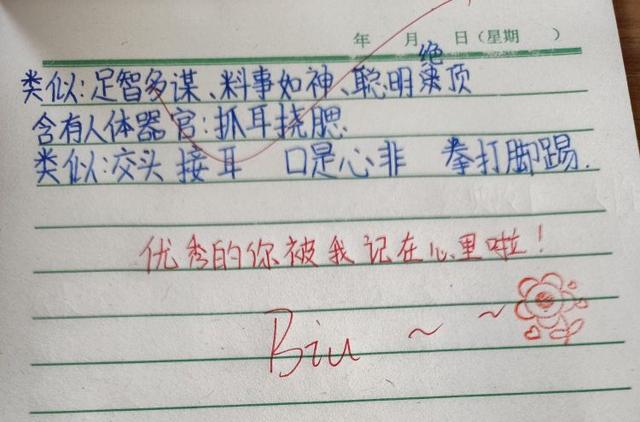 年 月 日（星期 ）
绝
类似：足智多谋、料事如神、聪明顶
含有人体器官：抓耳挠腮
类似：交头接耳 口是心非 拳打脚踢.
优秀的你被我记在心里啦！
Biu ~ ~